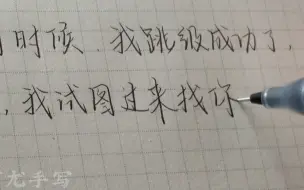 时候，我跳级成功了，
，我试图过来找你
尤手写